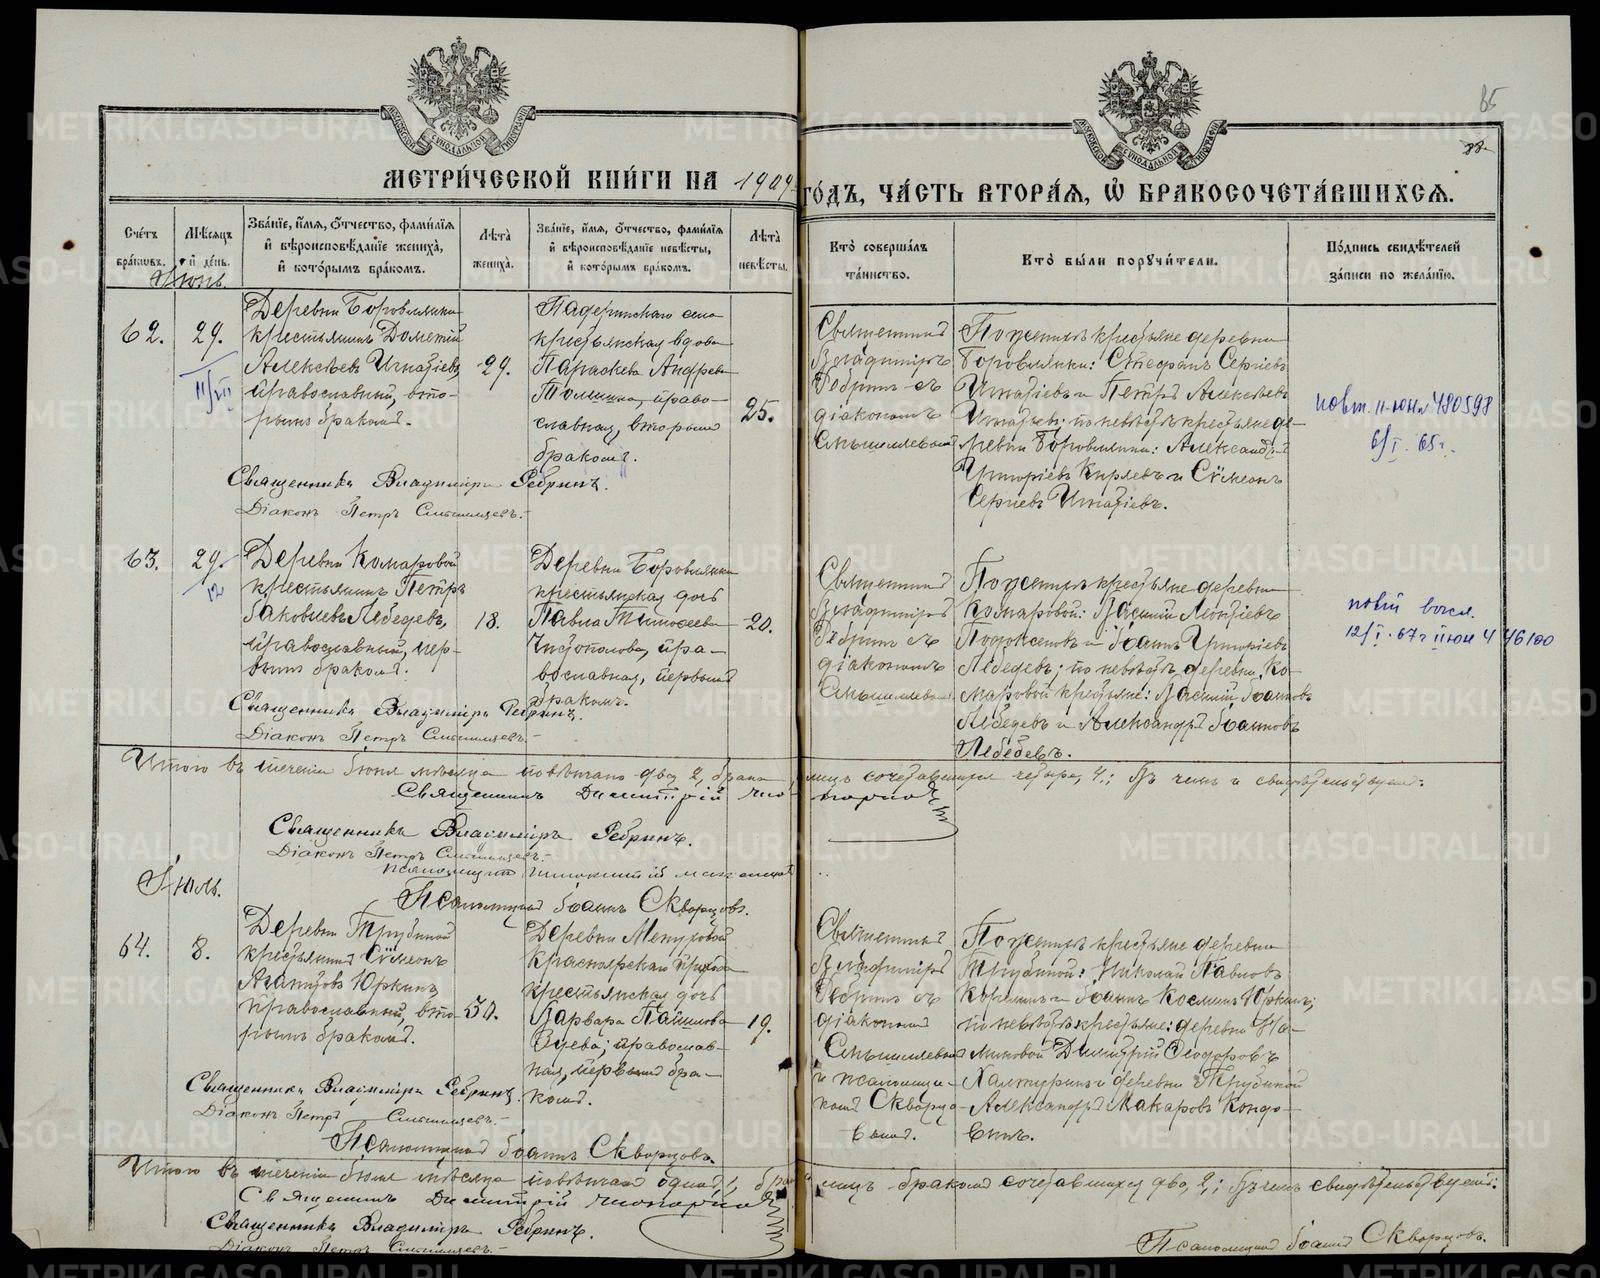 МОСКОВСКОЙ СѴНОДАЛЬНОЙ ТИПОГРАФІИ
МОСКОВСКОЙ СѴНОДАЛЬНОЙ ТИПОГРАФІИ
85
МЕТРИ́ЧЕСКОЙ КНИ́ГИ НА 1909 ГО́ДЪ, ЧА́СТЬ ВТОРА́Я, Ѡ БРАКОСОЧЕТА́ВШИХСЯ.
Сче́тъ бра́ковъ.
Мѣ́сяцъ и де́нь.
Зва́нїе, и́мя, о́тчество, фами́лїя и вѣроисповѣ́данїе жениха̀, и кото́рымъ бра́комъ.
Лѣ́та жениха̀.
Зва́нїе, и́мя, о́тчество, фами́лїя и вѣроисповѣ́данїе невѣ́сты, и кото́рымъ бра́комъ.
Лѣ́та невѣ́сты.
Кто̀ соверша́лъ та́инство.
Кто̀ бы́ли поручи́тели.
По́дпись свидѣ́телей за́писи по жела́нїю.
Іюнь.
62.
29.
Деревни Боровлянки
крестьянинъ Дометій
Алексѣевъ Игнатіевъ,
православный, вто-
рымъ бракомъ.
29.
Падеринскаго села
крестьянская вдова
Параскева Андреева
православная, вторымъ
бракомъ.
25.
Священникъ
Владиміръ
Ребринъ съ
діакономъ
Смышляевымъ
По женихѣ крестьяне деревни
Боровлянки: Стефанъ Сергіевъ
Игнатіевъ и Петръ Алексѣевъ
Игнатіевъ; по невѣстѣ крестьяне де-
ревни Боровлянки: Александръ
Григоріевъ и Сѵмеонъ
Сергіевъ Игнатіевъ.
Священникъ Владиміръ Ребринъ.
Діаконъ Петръ Смышляевъ.
63.
29.
Деревни Комаровой
крестьянинъ Петръ
Іаковлевъ Лебедевъ,
православный, пер-
вымъ бракомъ.
18.
Деревни Боровлянки
крестьянская дочь
Павла Тимоѳеева
Чистополова, пра-
вославная, первымъ
бракомъ.
20.
Священникъ
Владиміръ
Ребринъ съ
діакономъ
Смышляевымъ
По женихѣ крестьяне деревни
Комаровой: Василій Леонтіевъ
и Іоаннъ Григоріевъ
Лебедевъ; по невѣстѣ деревни Ко-
маровой крестьяне: Василій Іоанновъ
Лебедевъ и Александръ Іоанновъ
Лебедевъ.
Священникъ Владиміръ Ребринъ.
Діаконъ Петръ Смышляевъ.
Итого въ теченіи Іюня мѣсяца повѣнчано два, 2, брака, лицъ сочетавшихся четыре, 4; въ чемъ и свидѣтельствуемъ:
Священникъ Димитрій
Священникъ Владиміръ Ребринъ.
Діаконъ Петръ Смышляевъ.
Псаломщикъ
Псаломщикъ Іоаннъ Скворцовъ.
Іюль.
64.
8.
Деревни Трубиной
крестьянинъ Сѵмеонъ
Агапитовъ Юркинъ,
православный, вто-
рымъ бракомъ.
50.
Деревни
Красноярскаго прихода
крестьянская дочь
Варвара
Зуева, православ-
ная, первымъ бра-
комъ.
19.
Священникъ
Владиміръ
Ребринъ съ
діакономъ
Смышляевымъ
и псаломщи-
комъ Скворцо-
вымъ.
По женихѣ крестьяне деревни
Трубиной: Николай Павловъ
и Іоаннъ Косминъ Юркинъ;
по невѣстѣ крестьяне: деревни
Димитрій Ѳеодоровъ
Халтуринъ и деревни Трубиной
Александръ Макаровъ
Священникъ Владиміръ Ребринъ.
Діаконъ Петръ Смышляевъ.
Псаломщикъ Іоаннъ Скворцовъ.
Итого въ теченіи Іюля мѣсяца повѣнчанъ одинъ, 1, бракъ, лицъ бракомъ сочетавшихся два, 2; въ чемъ свидѣтельствуемъ:
Священникъ Димитрій
Священникъ Владиміръ Ребринъ.
Діаконъ Петръ Смышляевъ.
Псаломщикъ Іоаннъ Скворцовъ.
METRIKI.GASO-URAL.RU